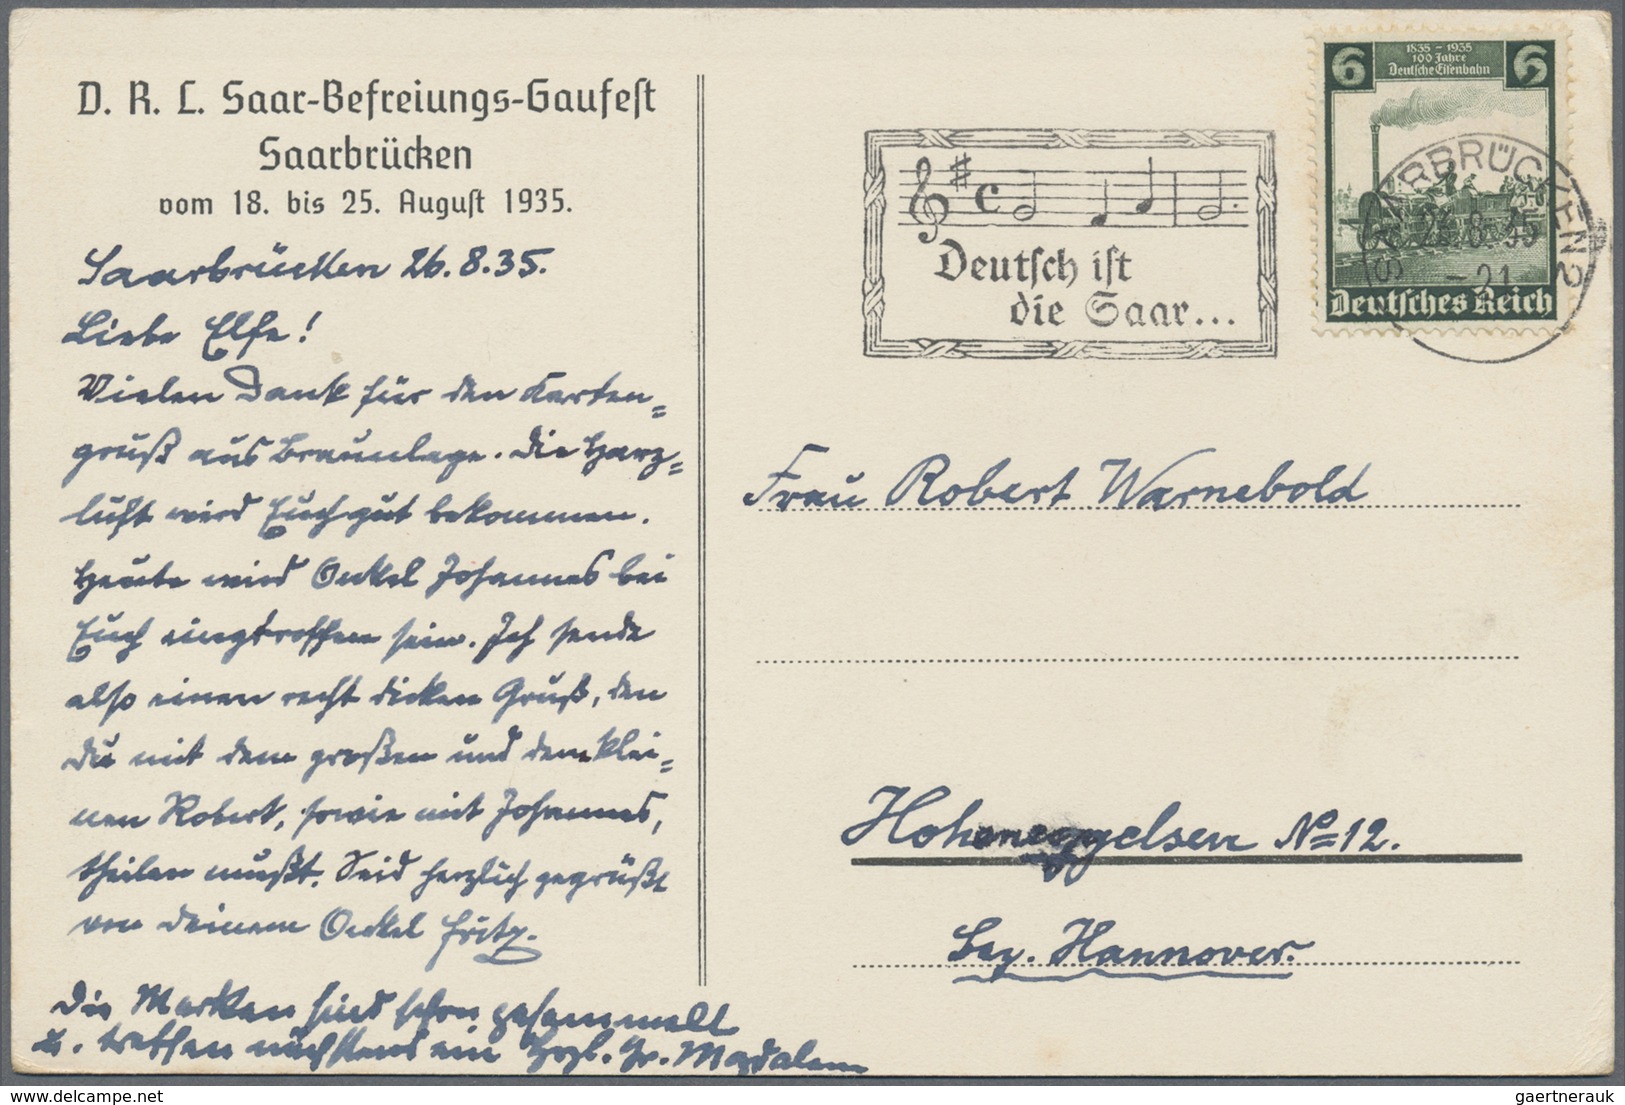 D. R. L. Saar-Befreiungs-Gaufest
Saarbrücken
vom 18. bis 25. August 1935.
Saarbrücken 26.8.35.
Liebe Else!
Vielen Dank für den Karten=
gruß aus Braunlage. Die Harz=
luft wird Euch gut bekommen.
Heute wird Onkel Johannes bei
Euch eingetroffen sein. Ich sende
also einen recht dicken Gruß, den
Du mit dem großen und dem klei=
nen Robert, sowie mit Johannes,
theilen mußt. Seid herzlich gegrüßt
von Deinem Onkel Fritz.
Die Marken sind schon gesammelt
u. treffen nächstens ein Hrzl. Gr. Magdalene
6 1835 - 1935 6
100 Jahre
Deutsche Eisenbahn
Deutsches Reich
SAARBRÜCKEN 2
26.8.35
-21
Deutsch ist
die Saar...
Frau Robert Warnebold
Hoheneggelsen No 12.
Bez. Hannover.
gaertnerauk